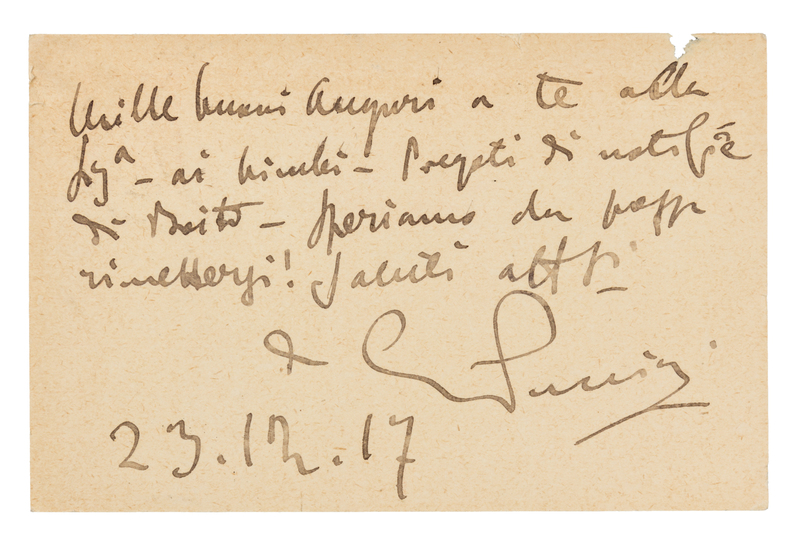 Mille buoni auguri a te alla
Sig^a – ai bimbi – Pregoti di notizie
di Boito – Speriamo che possa
rimettersi! Saluti affti
di G Puccini
23.12.17